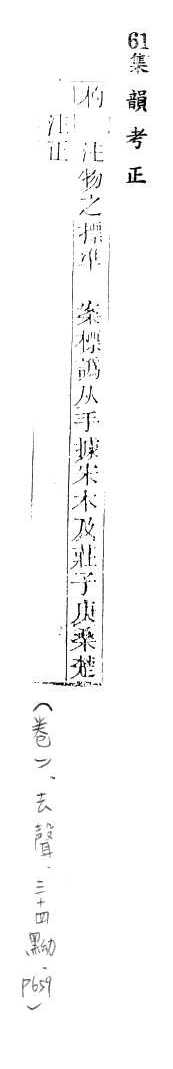 61集韻考正
杓 注物之摽準 案標譌从手據宋本及莊子庚桑楚
注正
(卷八、去聲、三十四黝、P659)